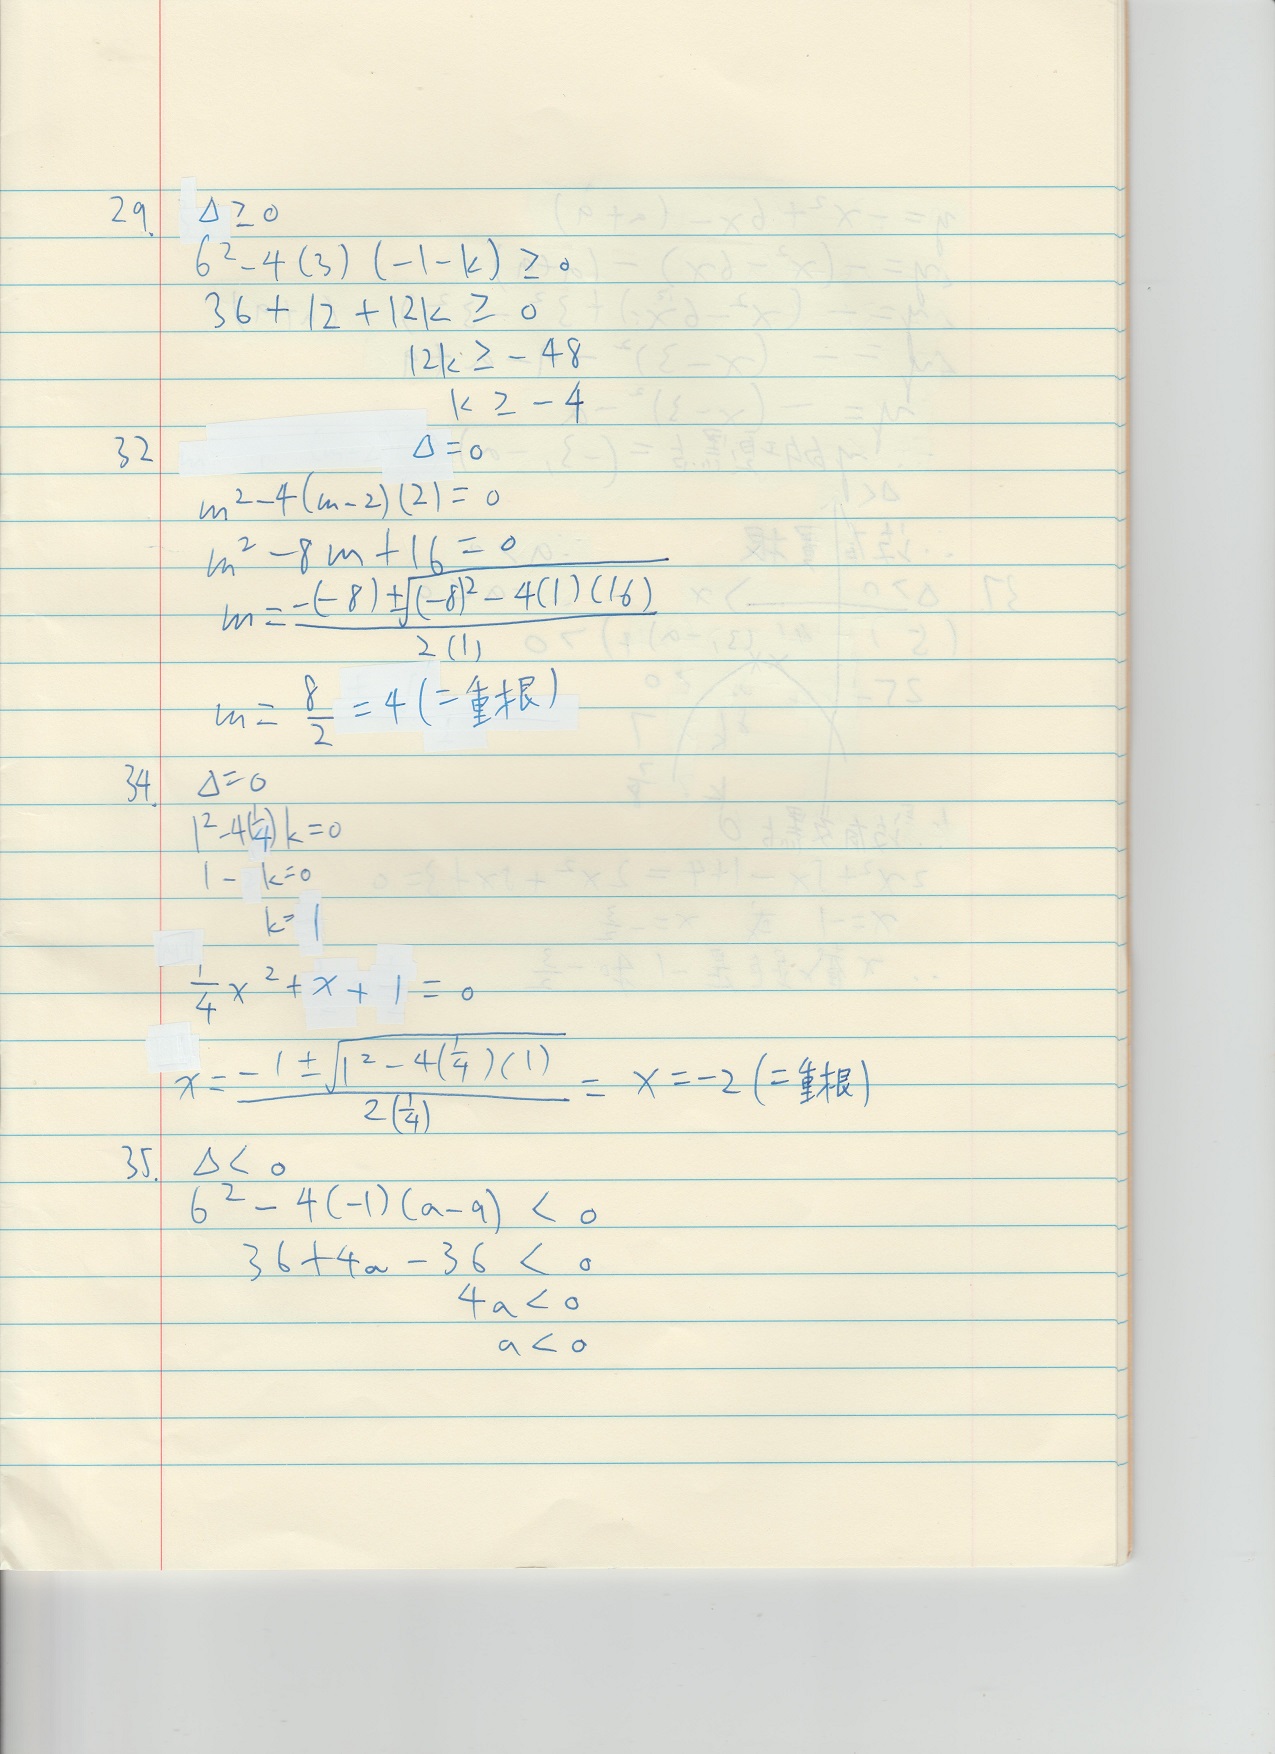 29. Δ ≥ 0
6² - 4(3)(-1-k) ≥ 0
36 + 12 + 12k ≥ 0
12k ≥ -48
k ≥ -4
32 Δ = 0
m² - 4(m-2)(2) = 0
m² - 8m + 16 = 0
m = \frac{-(-8) ± \sqrt{(-8)² - 4(1)(16)}}{2(1)}
m = \frac{8}{2} = 4 (二重根)
34. Δ = 0
1² - 4(\frac{1}{4})k = 0
1 - k = 0
k = 1
\frac{1}{4}x² + x + 1 = 0
x = \frac{-1 ± \sqrt{1² - 4(\frac{1}{4})(1)}}{2(\frac{1}{4})} = x = -2 (二重根)
35. Δ < 0
6² - 4(-1)(a-9) < 0
36 + 4a - 36 < 0
4a < 0
a < 0